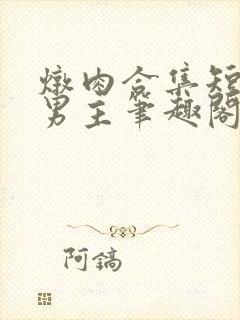 燉肉合集短
男主筆趣閣
阿鎬